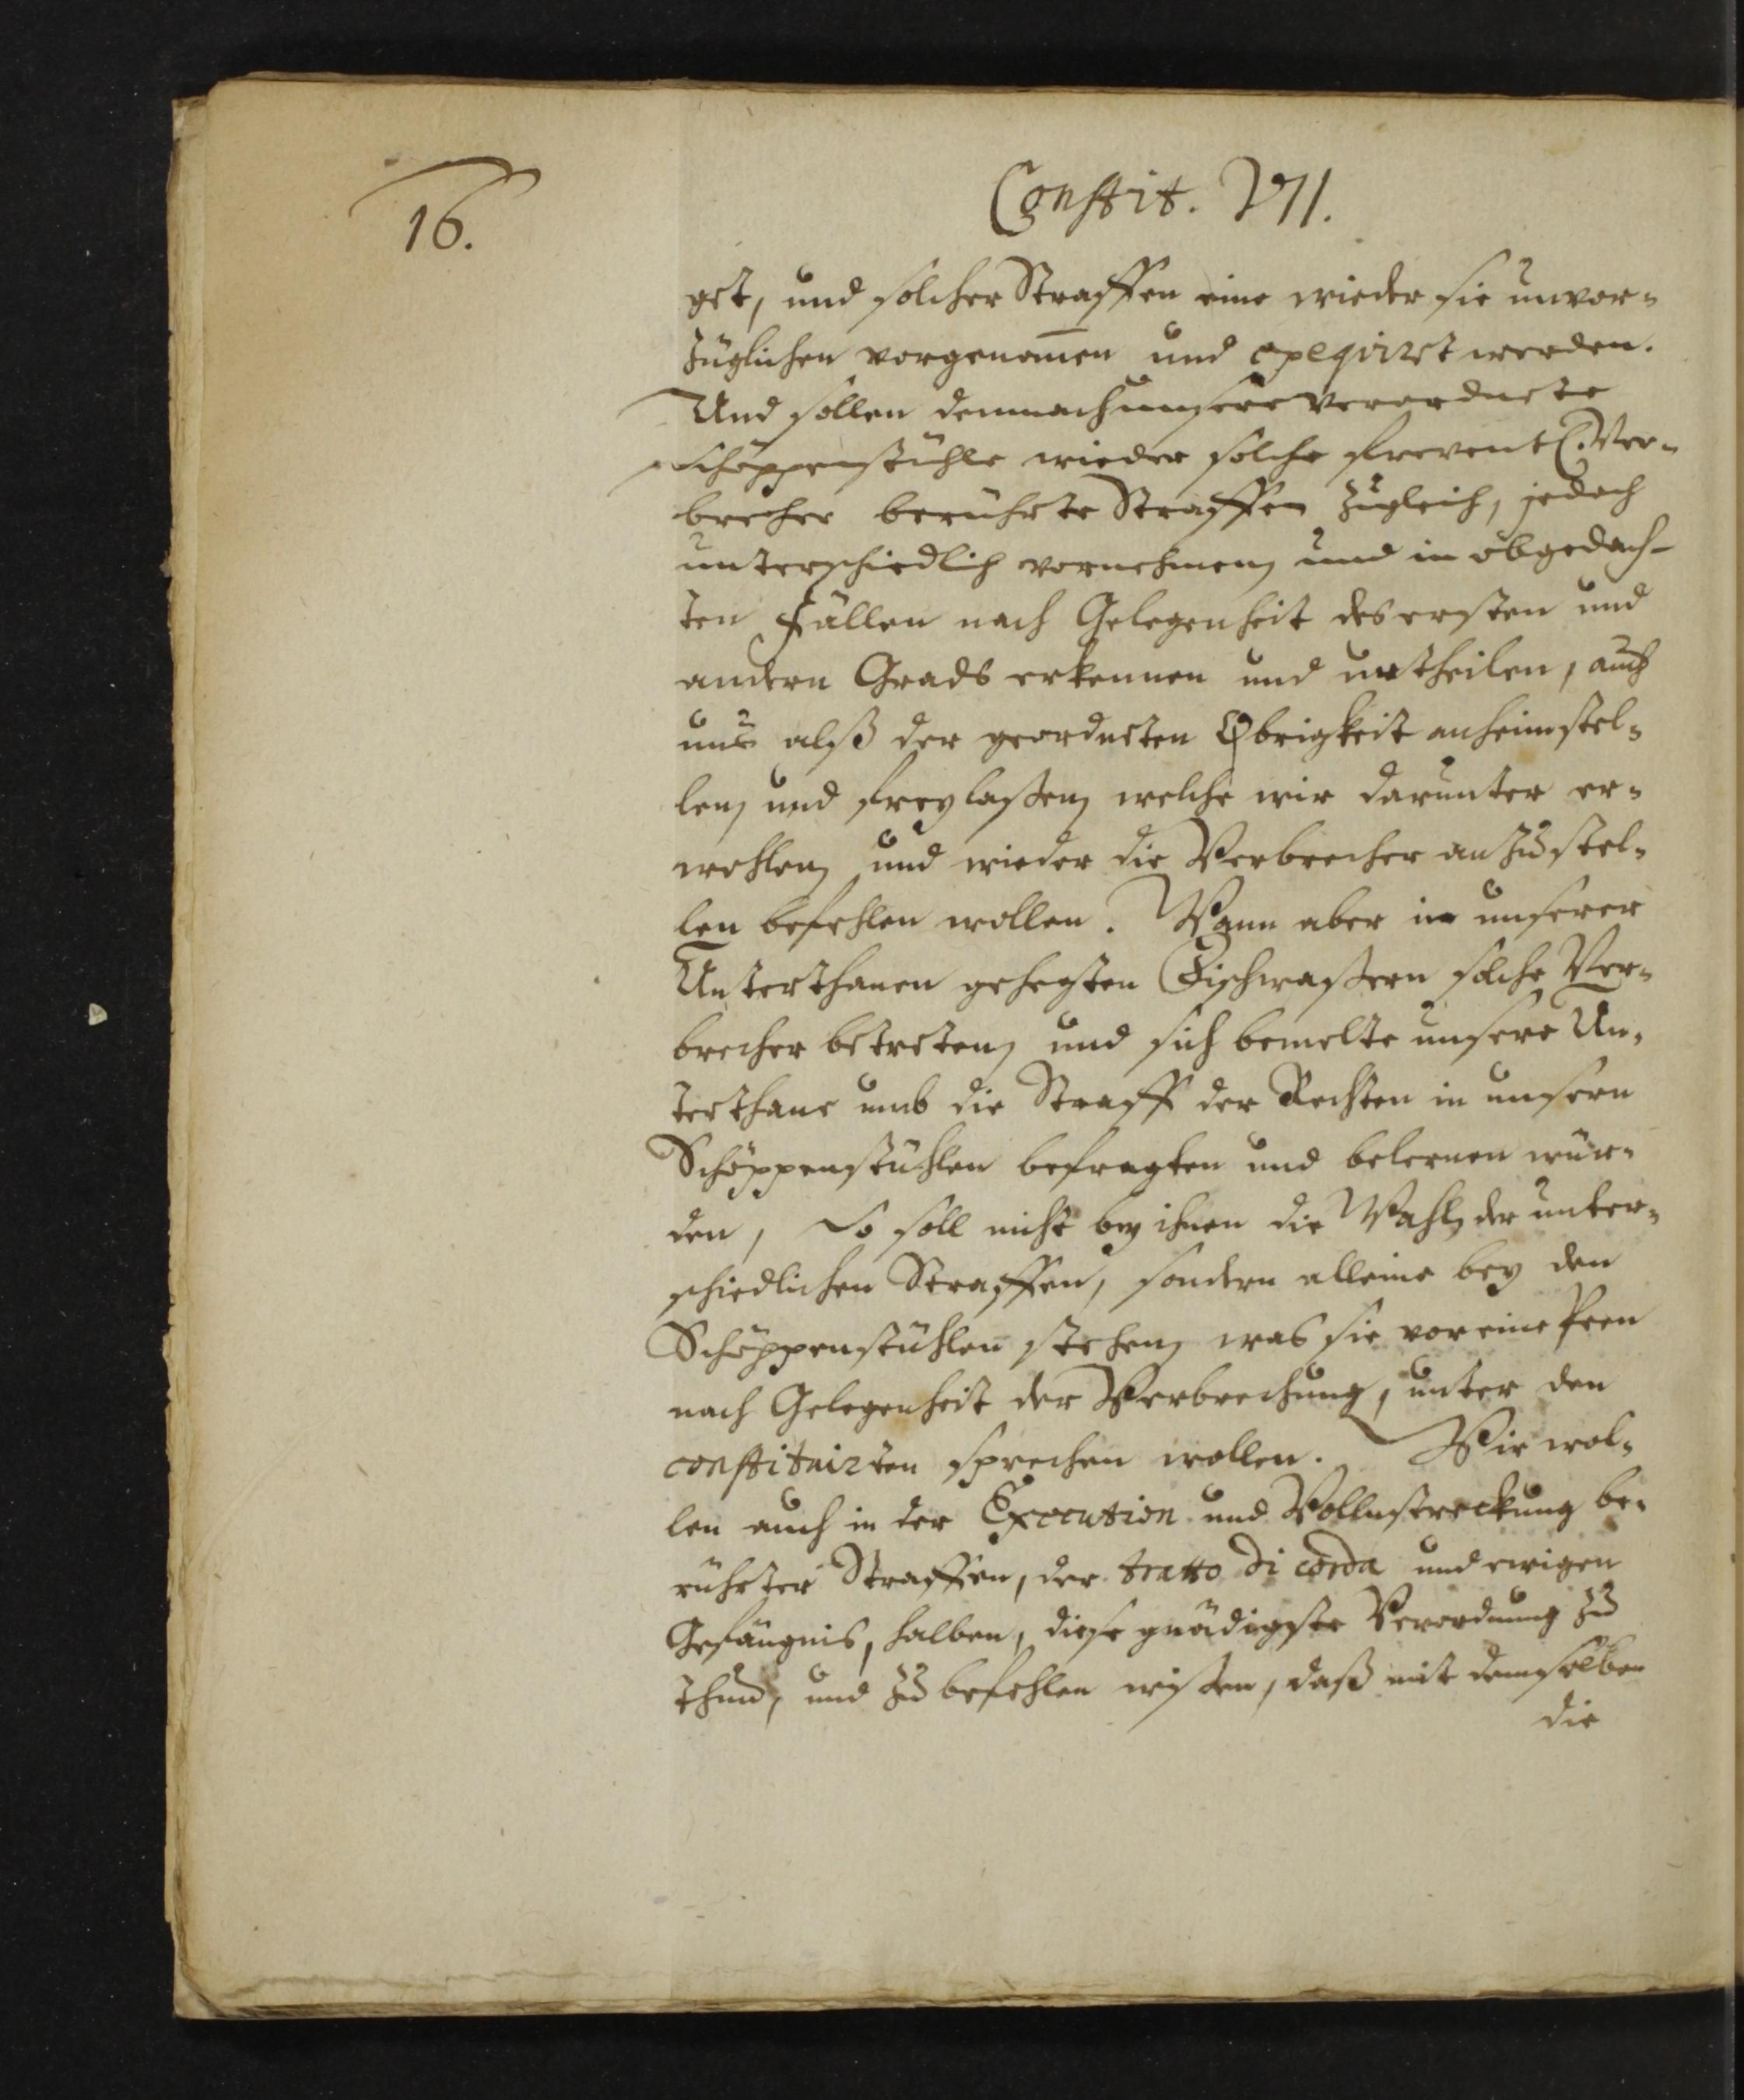 16.
Constit. VII.
get, und solcher Straffen eine wieder sie unvor-
züglichen vorgenom̄en und exequiret werden.
Und sollen demnach unsere verordnete
Schöppenstühle wieder solche frevent. Ver-
brecher berührte Straffen zugleich, jedoch
unterschiedlich vornehmen, und in obgedach-
ten Fällen nach Gelegenheit des ersten und
andern Grads erkennen und urtheilen, auch
uns alß der geordneten Obrigkeit anheimstel-
len, und freylaßen, welche wir darunter er-
wehlen, und wieder die Verbrecher anzustel-
len befehlen wollen. Wann aber in unserer
Unterthanen gehegten Fischwaßern solche Ver-
brecher betreten, und sich bemelte unsere Un-
terthane umb die Straff der Rechten in unsern
Schöppenstühlen befragten und belernen wür-
den, So soll nicht bey ihnen die Wahl, der unter-
schiedlichen Straffen, sondern alleine bey den
Schöppenstühlen stehen, was sie vor eine Peen
nach Gelegenheit der Verbrechung, unter den
constituirten sprechen wollen. Wir wol-
len auch in der Execution und Vollnstreckung be-
rührter Straffen, der tratto di corda und ewigen
Gefängnis, halben, diese gnädigste Verordnung zu
thun, und zu befehlen wißen, daß mit demselben
die